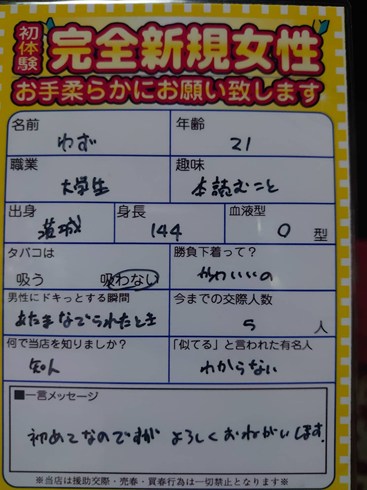 初体験 完全新規女性
お手柔らかにお願い致します
名前 わず 年齢 21
職業 大学生 趣味 本読むこと
出身 茨城 身長 144 血液型 O 型
タバコは 吸う 吸わない 勝負下着って? かわいいの
男性にドキっとする瞬間 あたまなでられたとき 今までの交際人数 5 人
何で当店を知りましたか? 知人 「似てる」と言われた有名人 わからない
■一言メッセージ
初めてなのですが よろしくおねがいします.
※当店は援助交際・売春・買春行為は一切禁止となります※